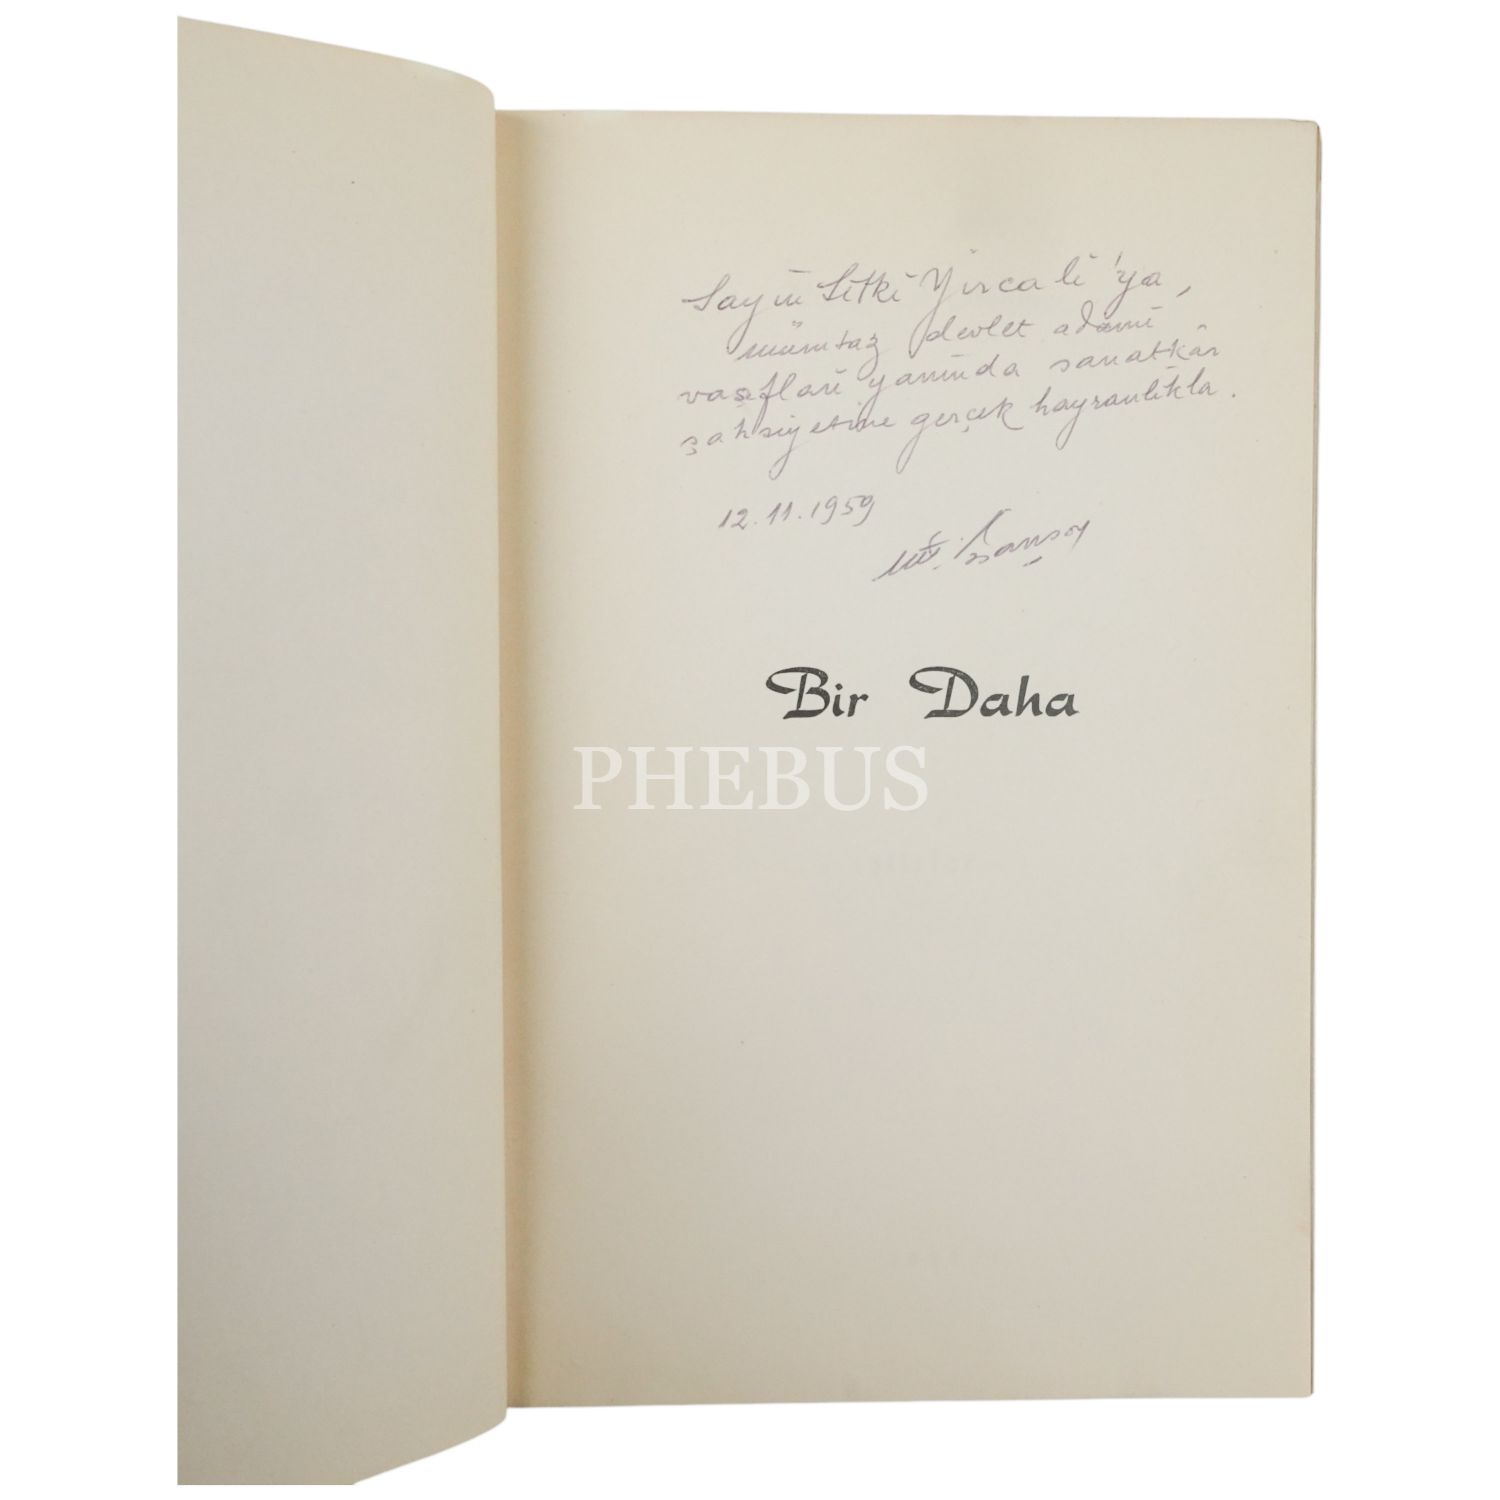 Sayın Sıtkı Yırcalı'ya,
mümtaz devlet adamı
vasıfları yanında sanatkâr
şahsiyetine gerçek hayranlıkla.
12.11.1959
Bir Daha
PHEBUS